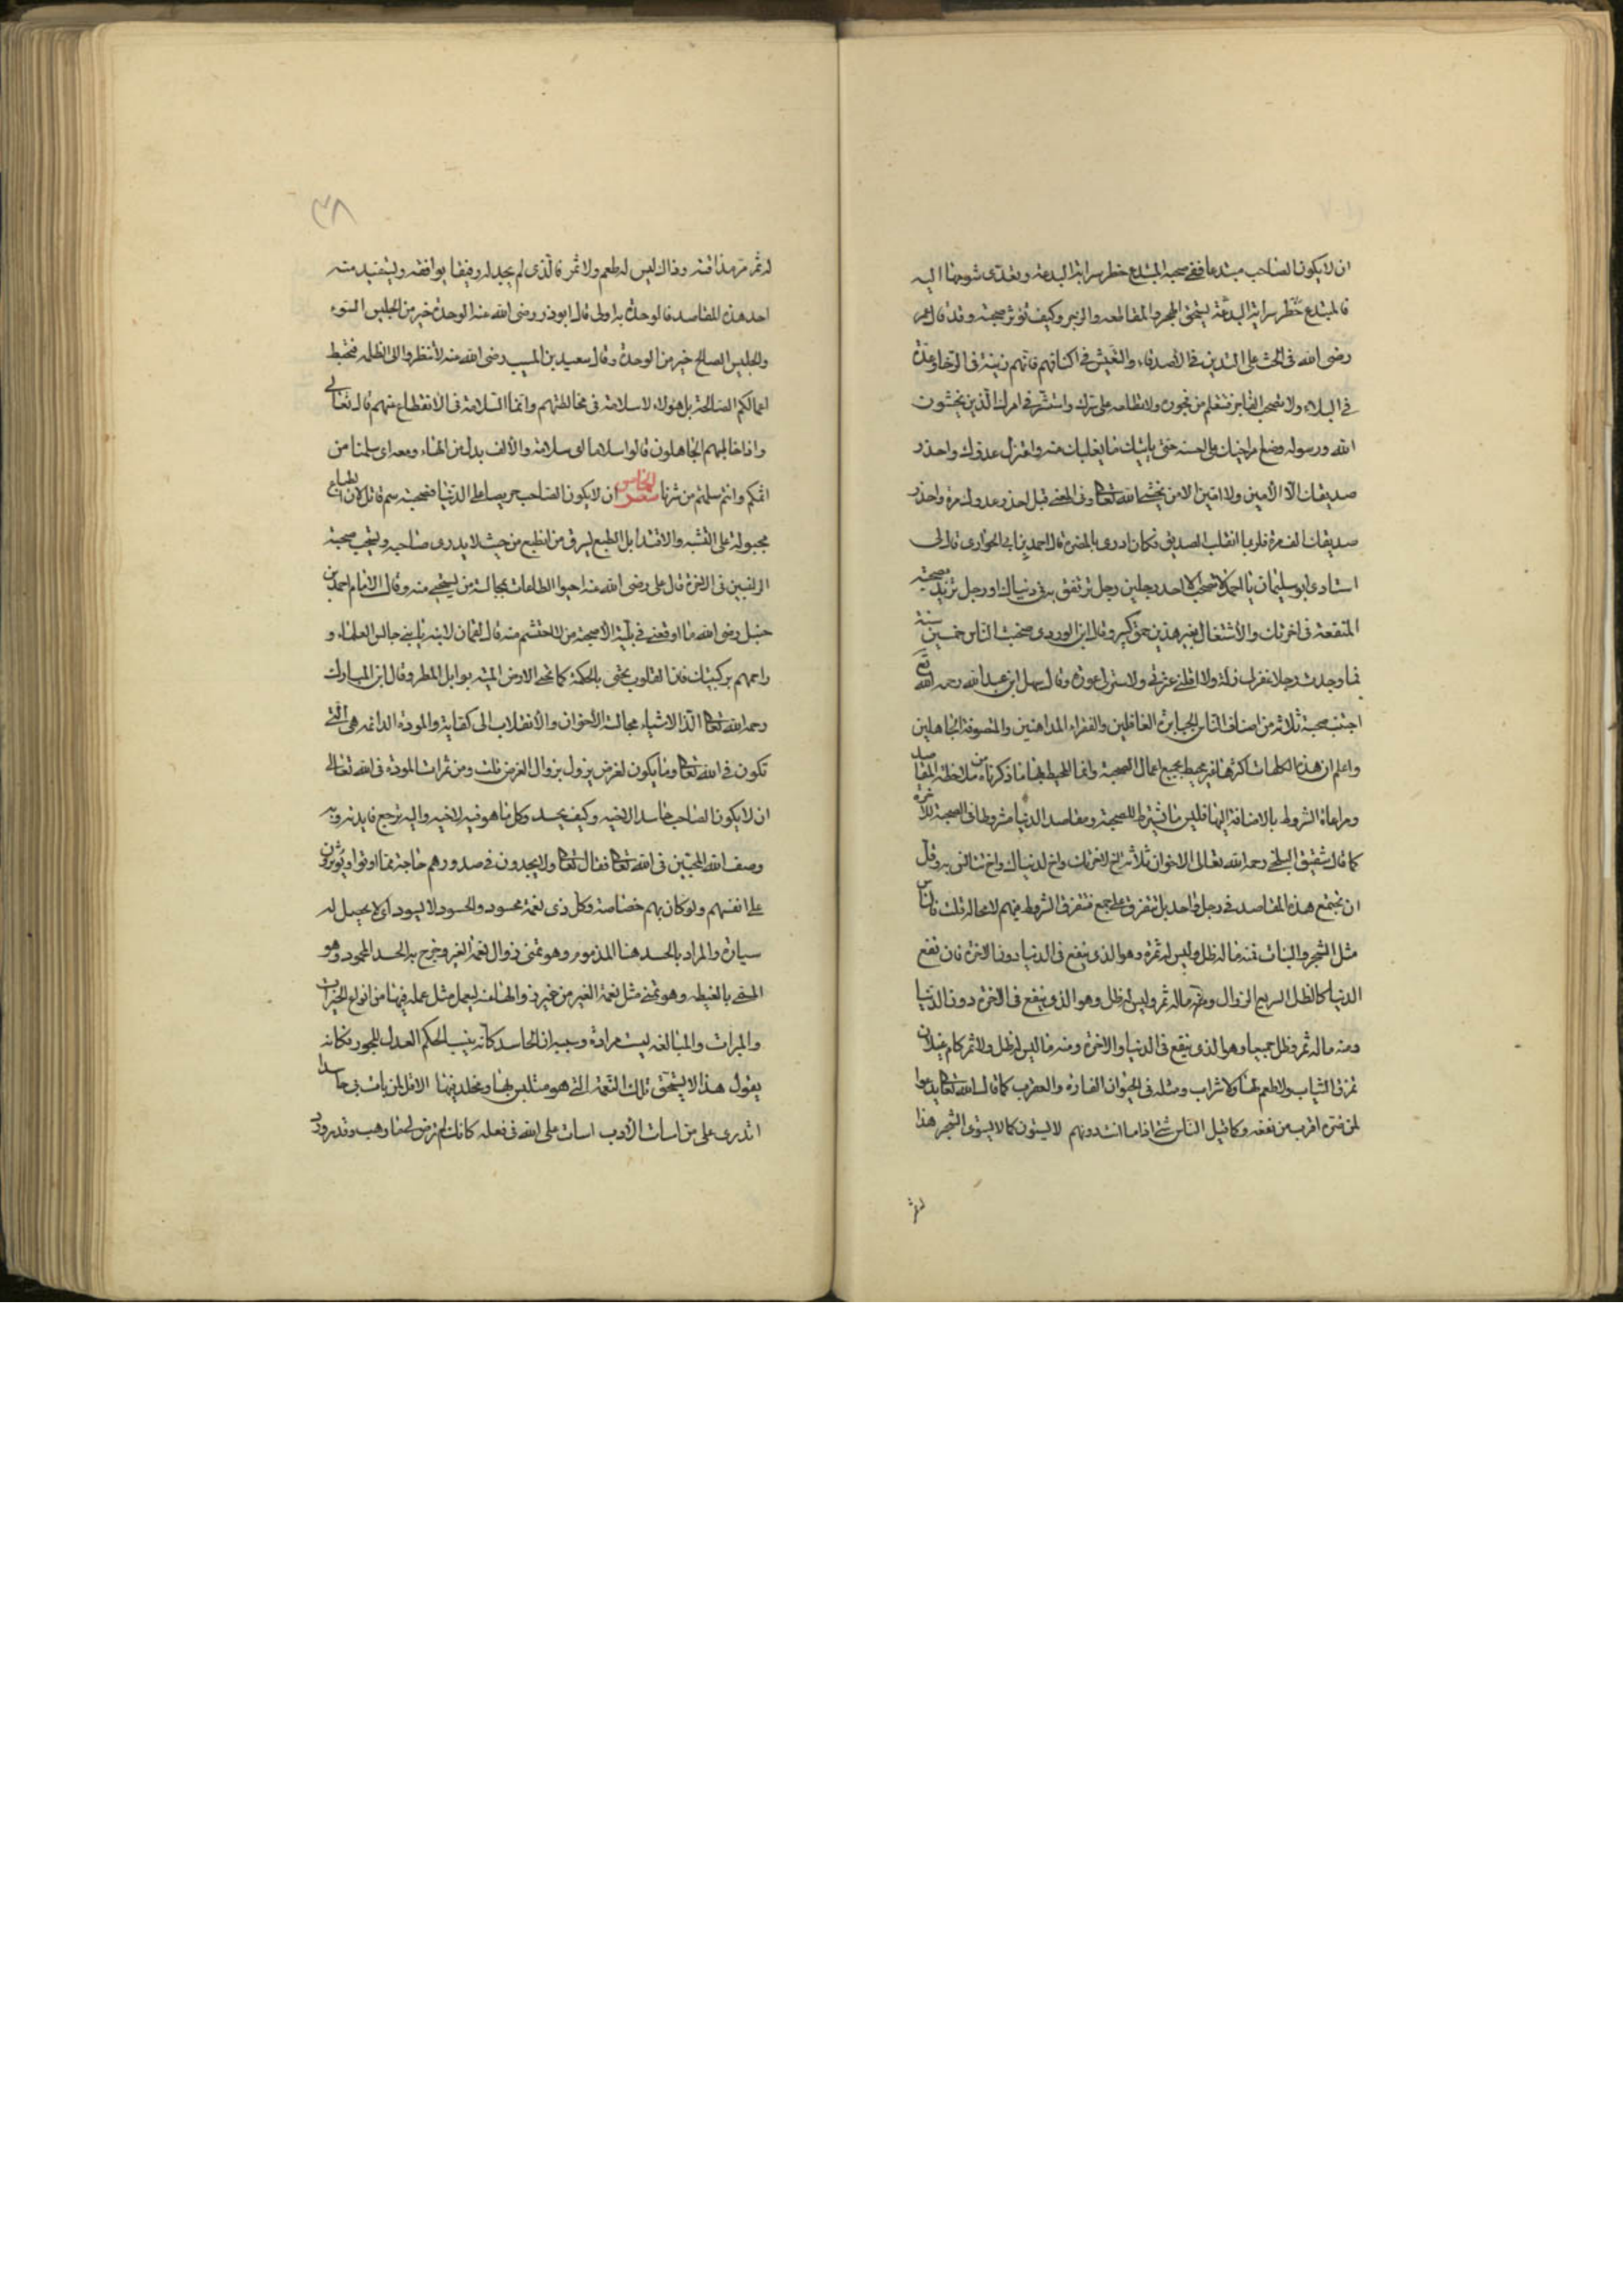 ان لا يكون الصاحب مبتدعا ففى صحبة المبتدع خطر سراية البدعة وتعدى شومها اليه
فالمبتدع خطر سراية البدعة يستحق الهجر والمقاطعه والزجر وكيف تؤثر صحبته وقد قال عمر
رضى الله فى الحث على التدين فى الاصدقاء والتعيش فى اكنافهم فانهم زينة فى الرخا وعدة
فى البلاء ولا تصحب الفاجر فتتعلم من فجوره ولا تطلعه على سرك واستشر فى امرك الذين يخشون
الله ورسوله وضع امر اخيك على احسنه حتى ياتيك ما يغلبك منه واعتزل عدوك واحذر
صديقك الا الأمين ولا امين الا من يخشى الله تعالى وفى المعنى قيل احذر عدوك مرة واحذر
صديقك الف مرة فلربما انقلب الصديق فكان ادرى بالمضره قال احمد بن ابى الحوارى قال لى
استادى ابو سليمان يا احمد لا تصحب الا احد رجلين رجل ترتفق به فى دنياك او رجل تزيد صحبته
المنفعة فى اخرتك والأشتغال بغير هذين حمق كبير وقال ابن الوردى صحبت الناس خمسين سنة
فما وجدت رجلا غفر لى زلة ولا اقالنى عثرتى ولا ستر لى عورة وقال سهل ابن عبد الله رحمه الله تع
اجتنب صحبة ثلاثة من اصناف الناس الجبابرة الغافلين والقراء المداهنين والمتصوفة الجاهلين
واعلم ان هذه الكلمات اكثرها غير محيط بجميع اعمال الصحبة وانما المحيط بها ما ذكرناه من ملاحظة المقاصد
ومراعاة الشروط بالاضافة اليها فليس ما يشترط للصحبة ومقاصد الدنيا مشروطا فى الصحبة للاخرة
كما قال شقيق البلخى رحمه الله تعالى الاخوان ثلاثة اخ لاخرتك واخ لدنياك واخ تتانس به وقل
ان تجتمع هذه المقاصد فى رجل واحد بل تتفرق على جمع فتتفرق الشروط فيهم لا محالة تلك فالناس
مثل الشجر والنبات فمنه ما له ظل وليس له ثمرة وهو الذى ينفع فى الدنيا دون الاخرة فان نفع
الدنيا كالظل السريع الزوال ومنه ما له ثمر وليس له ظل وهو الذى ينفع فى الاخرة دون الدنيا
ومنه ما له ثمر وظل جميعا وهو الذى ينفع فى الدنيا والاخرة ومنه ما ليس له ظل ولا ثمر كام غيلان
تمزق الثياب ولا طعم لها ولا شراب ومثله فى الحيوان الفارة والعقرب كما قال الله تعالى يدعوا
لمن ضره اقرب من نفعه وكما قيل الناس شتى اذا ما انت ذقتهم لا يستوون كما لا يستوى الشجر هذا
له ثمر
٣٨
له ثمر مر مذاقته وذاك ليس له طعم ولا ثمر فالذى لم يجد له رفيقا يوافقه ويستفيد منه
احد هذه المقاصد فالوحدة به اولى قال ابو ذر رضى الله عنه الوحدة خير من الجليس السوء
والجليس الصالح خير من الوحدة وقال سعيد بن المسيب رضى الله عنه لا تنظروا الى الظلمه فتحبط
اعمالكم الصالحة بل هولاء لا سلامة فى مخالطتهم وانما السلامة فى الانقطاع عنهم قال تعالى
واذا خاطبهم الجاهلون قالوا سلاما اى سلامة والألف بدل من الهاء ومعه اى سلمنا من
اثمكم وانتم سلمتم من شرنا الخامس عشر ان لا يكون الصاحب حريصا على الدنيا فصحبته سم قاتل لان الطباع
مجبولة على التشبه والاقتداء بل الطبع يسرق من الطبع من حيث لا يدرى صاحبه ويستحب صحبة
الراغبين فى الاخرة قال على رضى الله عنه احيوا الطاعات بمجالسة من يستحيى منه وقال الامام احمد بن
حنبل رضى الله ما اوقعنى فى بلية الا صحبة من لا احتشم منه قال لقمان لابنه يا بنى جالس العلماء و
زاحمهم بركبتيك فان القلوب تحيى بالحكمة كما تحيى الارض الميته بوابل المطر وقال ابن المبارك
رحمه الله تعالى الذ الاشياء مجالسة الأخوان والأنقلاب الى كفاية والمودة الدائمه هى التى
تكون فى الله تعالى وما يكون لغرض يزول بزوال الغرض تلك ومن ثمرات المودة فى الله تعالى
ان لا يكون الصاحب حاسدا لاخيه وكيف يحسده وكل ما هو فيه لاخيه واليه ترجع فايدته وبه
وصف الله المحبين فى الله تعالى فقال تعالى ولا يجدون فى صدورهم حاجة مما اوتوا ويؤثرون
على انفسهم ولو كان بهم خصاصة وكل ذى نعمة محسود والحسود لا يسود اى لا يحصل له
سيادة والمراد بالحسد هنا المذموم وهو تمنى زوال نعمة الغير وخرج به الحسد المحمود وهو
المسمى بالغبطه وهو تمنى مثل نعمة الغير من غير زوالها عنه ليعمل مثل عمله فيها من انواع الخيرات
والمبرات والمبالغه ليست مرادة وسببه ان الحاسد كانه ينسب الحكم العدل للجور فكانه
يقول هذا لا يستحق تلك النعمة التى هو متلبس بها ومخلد فيها الا قل لمن بات لى حاسدا
اتدرى على من اسات الأدب اسات على الله فى فعله كانك لم ترض لى ما وهب وقد ورد